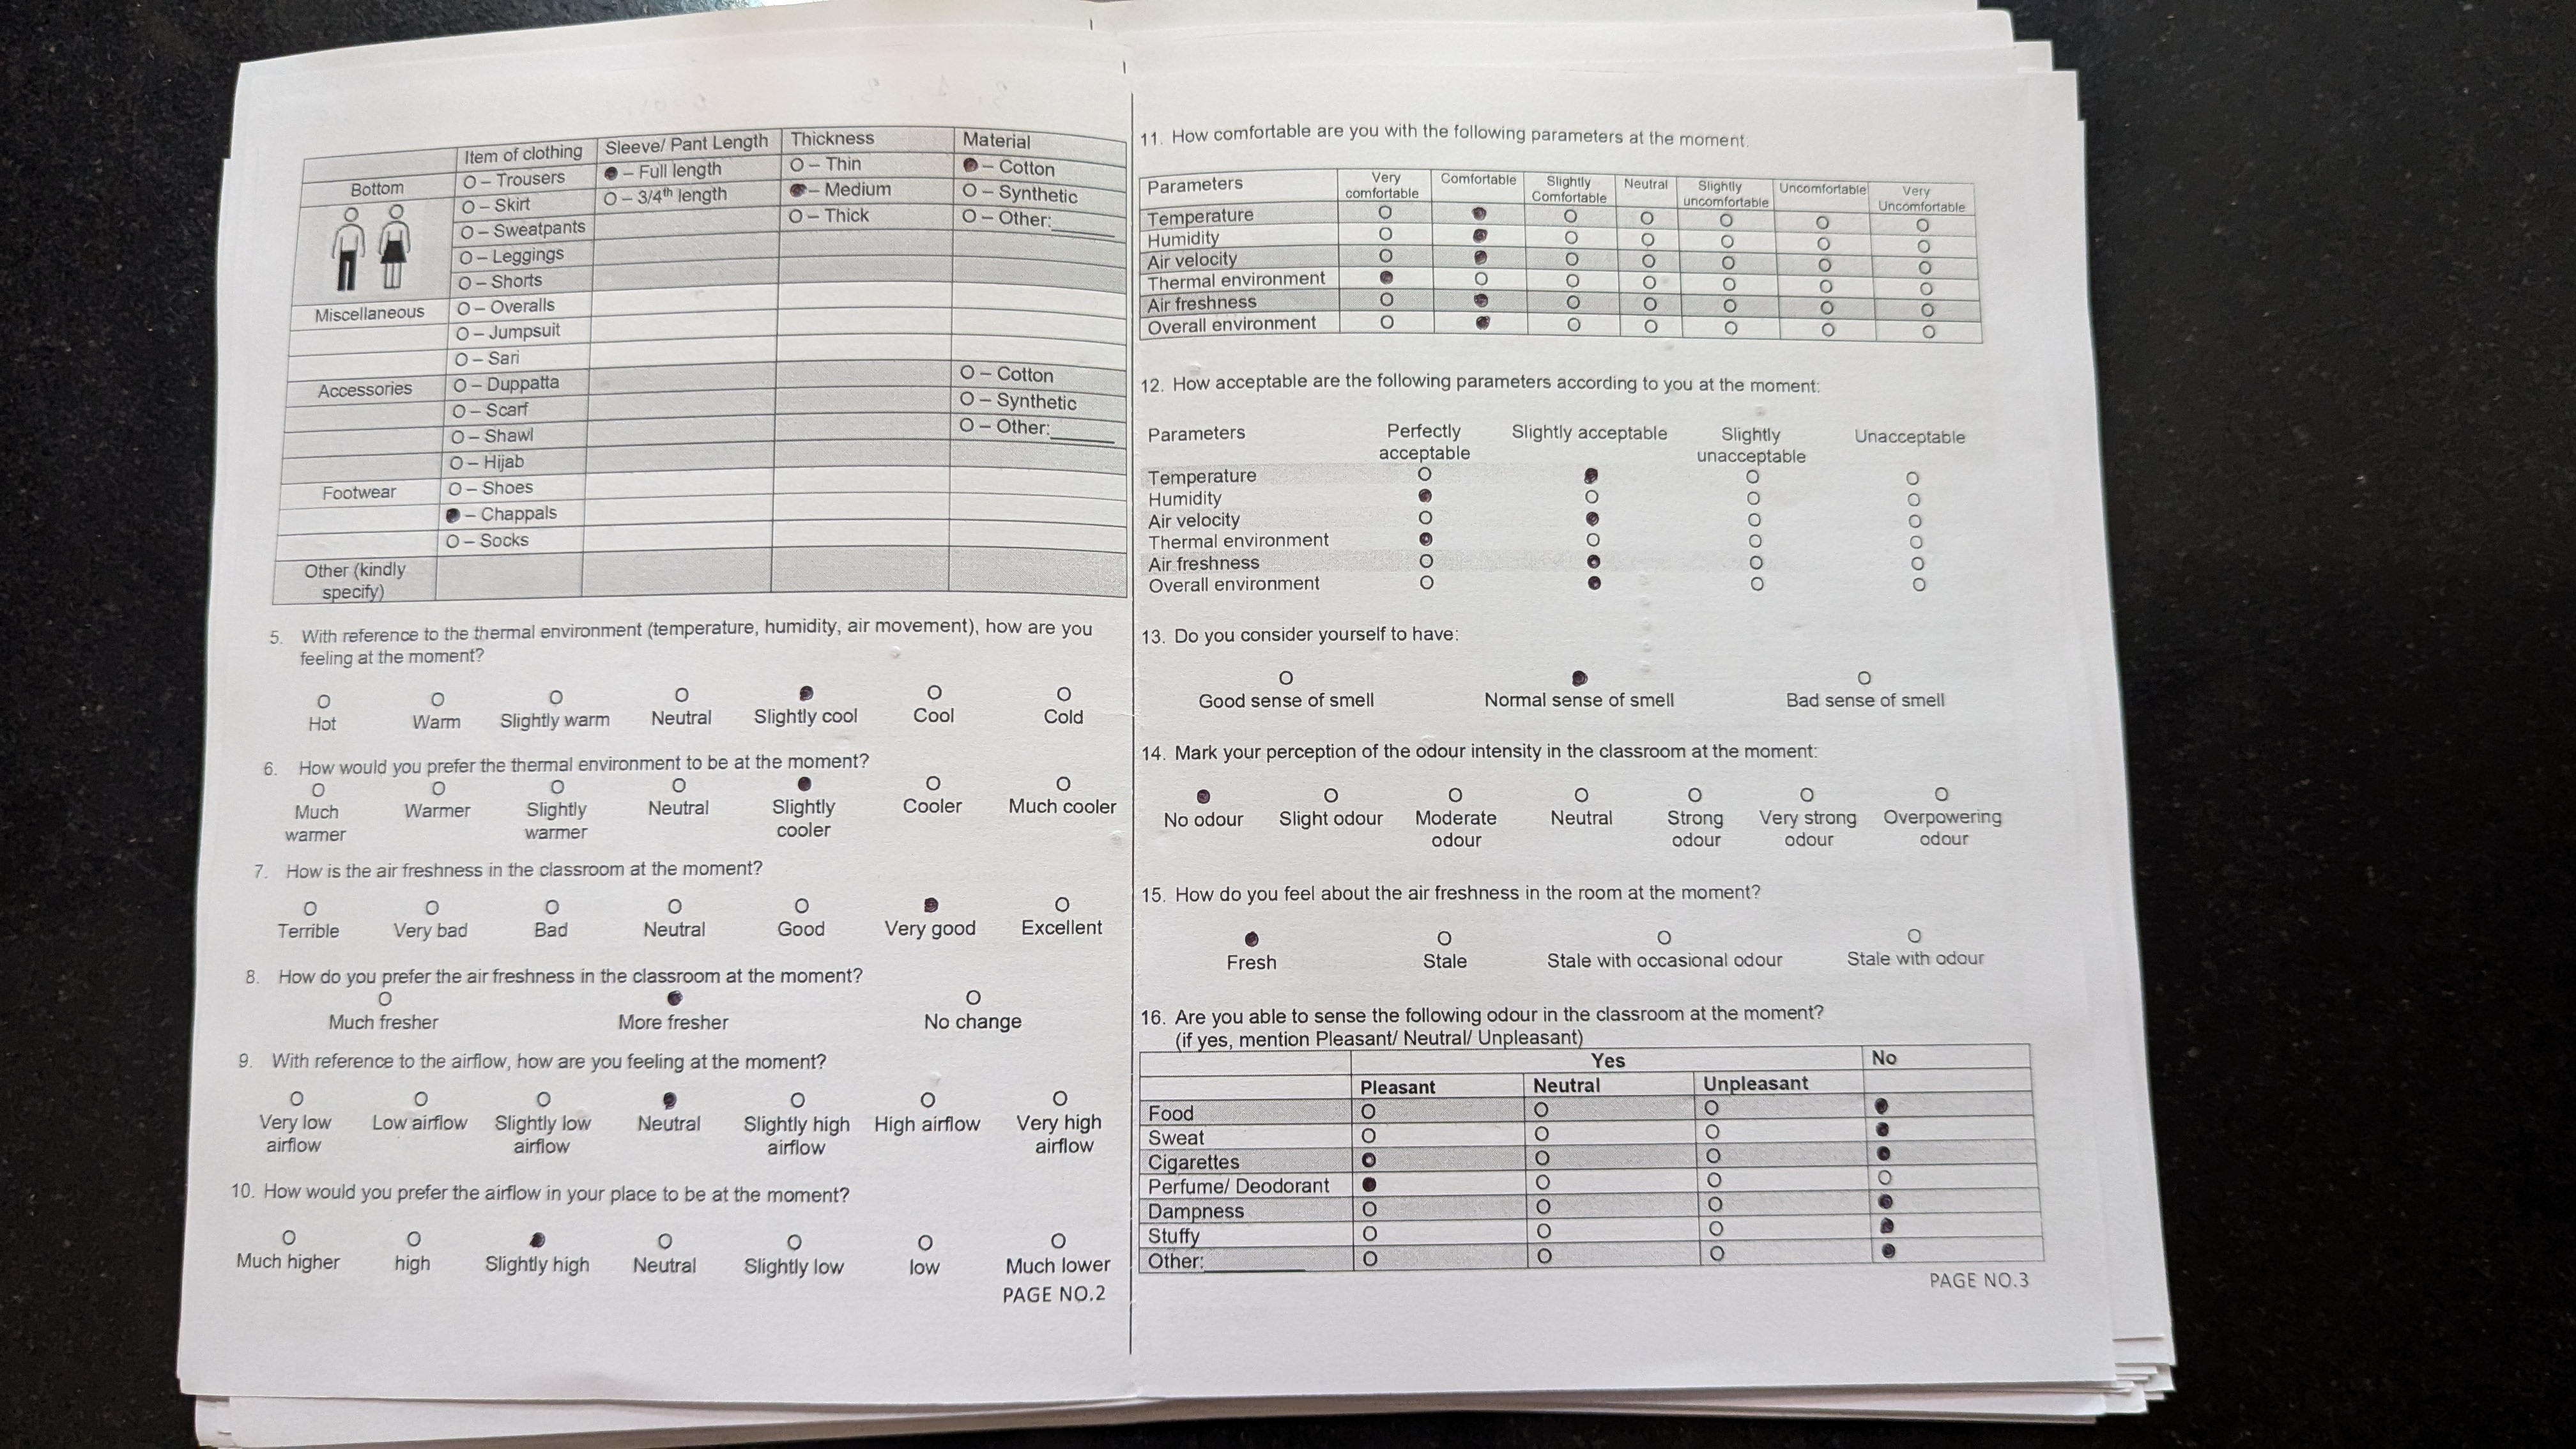 Item of clothing Sleeve/ Pant Length Thickness Material
Bottom O – Trousers ● – Full length O – Thin ● – Cotton
O – Skirt O – 3/4th length ● – Medium O – Synthetic
O – Sweatpants O – Thick O – Other:______
O – Leggings
O – Shorts
Miscellaneous O – Overalls
O – Jumpsuit
O – Sari
Accessories O – Duppatta O – Cotton
O – Scarf O – Synthetic
O – Shawl O – Other:______
O – Hijab
Footwear O – Shoes
● – Chappals
O – Socks
Other (kindly
specify)
5. With reference to the thermal environment (temperature, humidity, air movement), how are you
feeling at the moment?
O O O O ● O O
Hot Warm Slightly warm Neutral Slightly cool Cool Cold
6. How would you prefer the thermal environment to be at the moment?
O O O O ● O O
Much Warmer Slightly Neutral Slightly Cooler Much cooler
warmer warmer cooler
7. How is the air freshness in the classroom at the moment?
O O O O O ● O
Terrible Very bad Bad Neutral Good Very good Excellent
8. How do you prefer the air freshness in the classroom at the moment?
O ● O
Much fresher More fresher No change
9. With reference to the airflow, how are you feeling at the moment?
O O O ● O O O
Very low Low airflow Slightly low Neutral Slightly high High airflow Very high
airflow airflow airflow airflow
10. How would you prefer the airflow in your place to be at the moment?
O O ● O O O O
Much higher high Slightly high Neutral Slightly low low Much lower
PAGE NO.2
11. How comfortable are you with the following parameters at the moment.
Parameters Very Comfortable Slightly Neutral Slightly Uncomfortable Very
comfortable Comfortable uncomfortable Uncomfortable
Temperature O ● O O O O O
Humidity O ● O O O O O
Air velocity O ● O O O O O
Thermal environment ● O O O O O O
Air freshness O ● O O O O O
Overall environment O ● O O O O O
12. How acceptable are the following parameters according to you at the moment:
Parameters Perfectly Slightly acceptable Slightly Unacceptable
acceptable unacceptable
Temperature O ● O O
Humidity ● O O O
Air velocity O ● O O
Thermal environment ● O O O
Air freshness O ● O O
Overall environment O ● O O
13. Do you consider yourself to have:
O ● O
Good sense of smell Normal sense of smell Bad sense of smell
14. Mark your perception of the odour intensity in the classroom at the moment:
● O O O O O O
No odour Slight odour Moderate Neutral Strong Very strong Overpowering
odour odour odour odour
15. How do you feel about the air freshness in the room at the moment?
● O O O
Fresh Stale Stale with occasional odour Stale with odour
16. Are you able to sense the following odour in the classroom at the moment?
(if yes, mention Pleasant/ Neutral/ Unpleasant)
Yes No
Pleasant Neutral Unpleasant
Food O O O ●
Sweat O O O ●
Cigarettes ● O O ●
Perfume/ Deodorant ● O O O
Dampness O O O ●
Stuffy O O O ●
Other:__________ O O O ●
PAGE NO.3